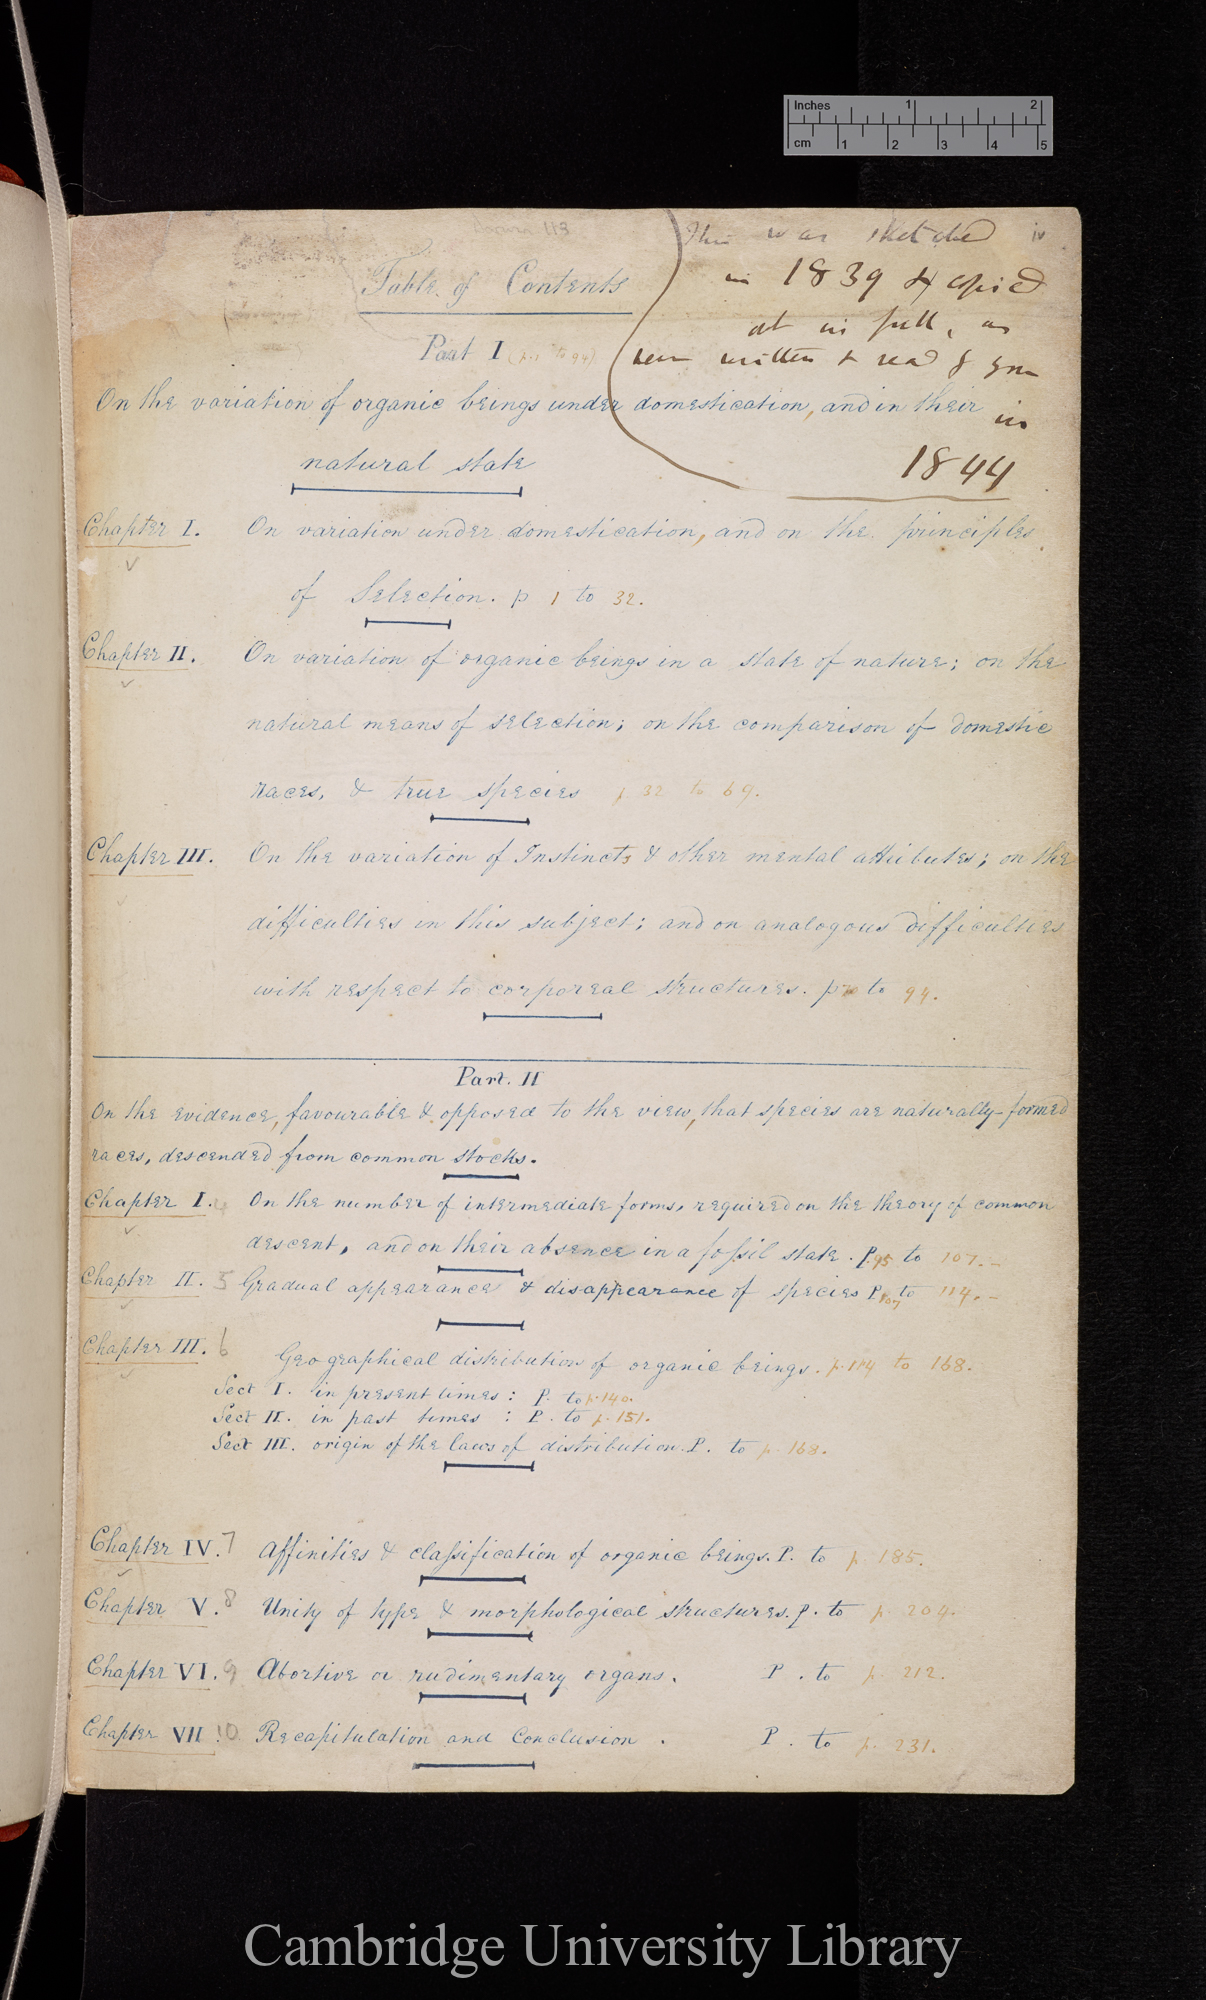 Inches 1 2
cm 1 2 3 4 5
This was sketched
iv
in 1839 & copied
out in full, as
here written & read by you
in
1844
Table of Contents
Part I (p. 1 to 94)
On the variation of organic beings under domestication, and in their
natural state
Chapter I. On variation under domestication, and on the principles
of Selection. p 1 to 32.
Chapter II. On variation of organic beings in a state of nature; on the
natural means of selection; on the comparison of domestic
races, & true species p 32 to 69.
Chapter III. On the variation of Instincts & other mental attributes; on the
difficulties in this subject; and on analogous difficulties
with respect to corporeal structures. p to 94.
Part. II
On the evidence, favourable & opposed to the view, that species are naturally formed
races, descended from common stocks.
Chapter I. 4 On the number of intermediate forms, required on the theory of common
descent, and on their absence in a fossil state. P. 95 to 107.–
Chapter II. 5 Gradual appearance & disappearance of species P. 107 to 114.–
Chapter III. 6 Geographical distribution of organic beings. p. 114 to 168.
Sect I. in present times: P. to p. 140.
Sect II. in past times : P. to p. 151.
Sect III. origin of the laws of distribution. P. to p. 168.
Chapter IV. 7 Affinities & classification of organic beings. P. to p. 185.
Chapter V. 8 Unity of type & morphological structures. p. to p. 204.
Chapter VI. 9 Abortive or rudimentary organs. P. to p. 212.
Chapter VII. 10 Recapitulation and Conclusion. P. to p. 231.
Cambridge University Library